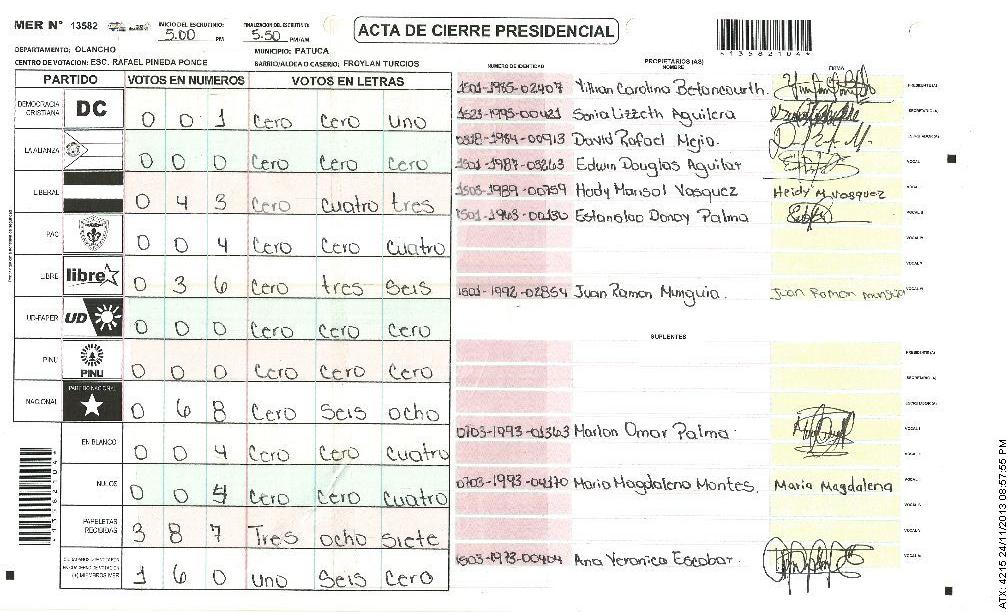 MER N° 13582
INICIO DEL ESCRUTINIO: 5:00 PM
FINALIZACION DEL ESCRUTINIO: 5:50 PM/AM
ACTA DE CIERRE PRESIDENCIAL
*13582104*
DEPARTAMENTO: OLANCHO
MUNICIPIO: PATUCA
CENTRO DE VOTACION: ESC. RAFAEL PINEDA PONCE
BARRIO/ALDEA O CASERIO: FROYLAN TURCIOS
PARTIDO VOTOS EN NUMEROS VOTOS EN LETRAS
DEMOCRACIA CRISTIANA DC 0 0 1 Cero Cero uno
LA ALIANZA 0 0 0 Cero Cero Cero
LIBERAL 0 4 3 Cero cuatro tres
PAC 0 0 4 Cero Cero cuatro
LIBRE libre 0 3 6 Cero tres seis
UD-FAPER UD 0 0 0 Cero Cero Cero
PINU PINU 0 0 0 Cero Cero Cero
NACIONAL PARTIDO NACIONAL 0 6 8 Cero Seis ocho
EN BLANCO 0 0 4 Cero Cero cuatro
NULOS 0 0 4 Cero Cero cuatro
PAPELETAS RECIBIDAS 3 8 7 Tres ocho siete
(+) MIEMBROS MER 1 6 0 uno Seis Cero
PROPIETARIOS (AS)
NUMERO DE IDENTIDAD NOMBRE FIRMA
1501-1985-02407 Carolina Betancourth. PRESIDENTE(A)
1523-1995-00421 Sonia Lizzeth Aguilera SECRETARIO(A)
0818-1984-00913 David Rafael Mejia. ESCRUTADOR(A)
1501-1987-03263 Edwin Douglas Aguilar VOCAL I
1503-1989-00759 Heidy Marisol Vasquez Heidy M Vasquez
1501-1963-00130 Estanolao Donay Palma
1501-1992-02854 Juan Ramon Munguia. Juan Ramon Munguia
SUPLENTES
PRESIDENTE(A)
SECRETARIO(A)
ESCRUTADOR(A)
0703-1993-01363 Marlon Omar Palma. VOCAL I
0703-1993-04170 Maria Magdalena Montes. Maria Magdalena
1503-1973-00404 Ana Veronica Escobar.
ATX: 4215 24/11/2013 08:57:55 PM